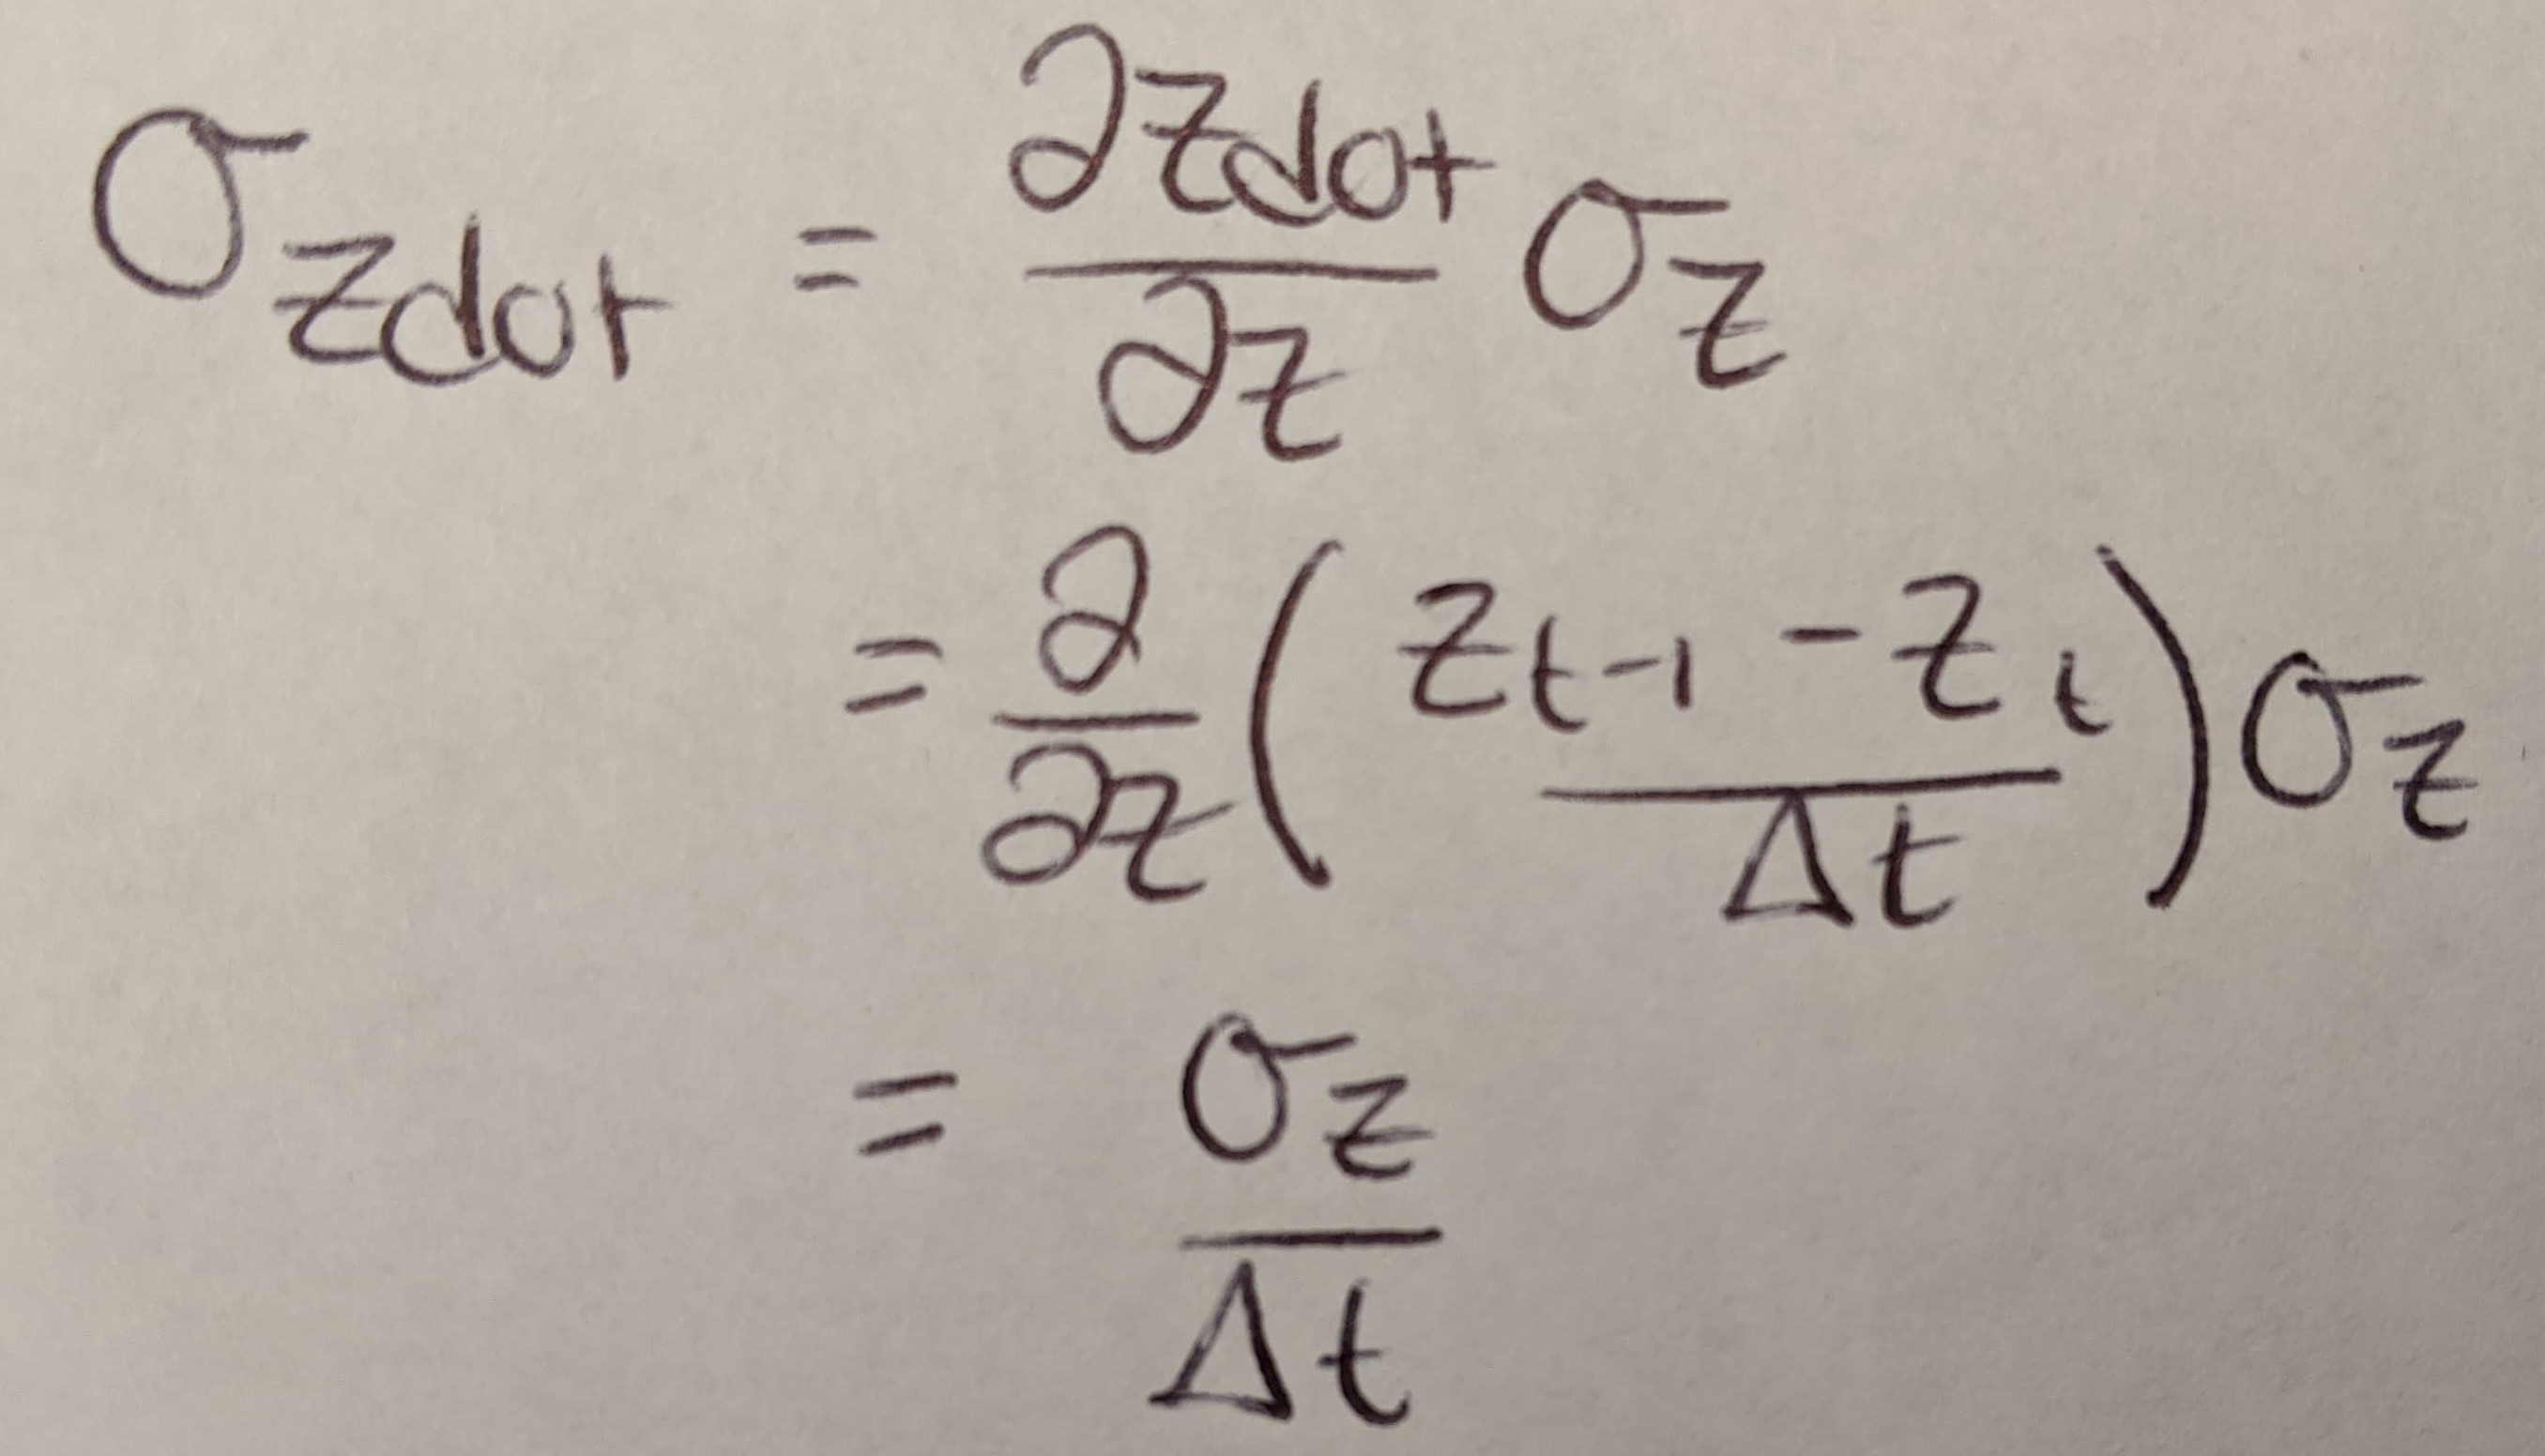 σ_zdot = ∂zdot/∂z σ_z
= ∂/∂z ( (z_{t-1} - z_t)/Δt ) σ_z
= σ_z/Δt